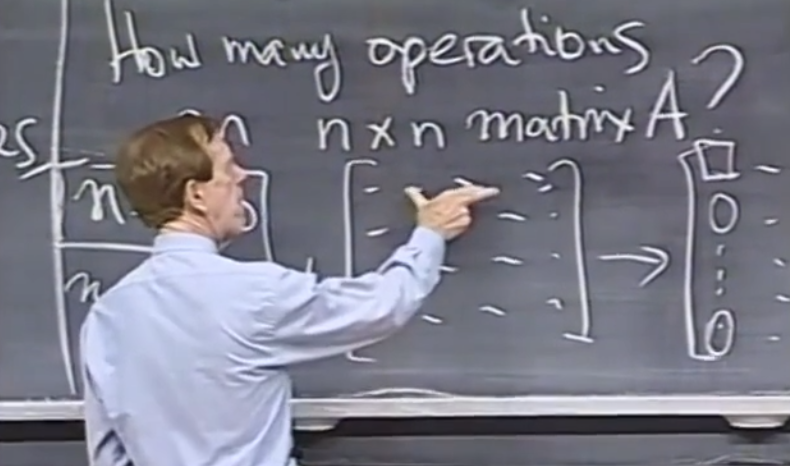 How many operations
on n x n matrix A ?
es
n
0
0
n